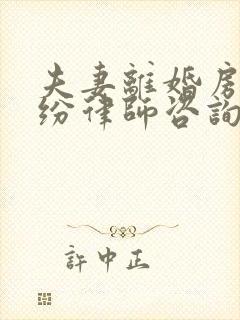 夫妻離婚房
紛律師咨詢
許中正